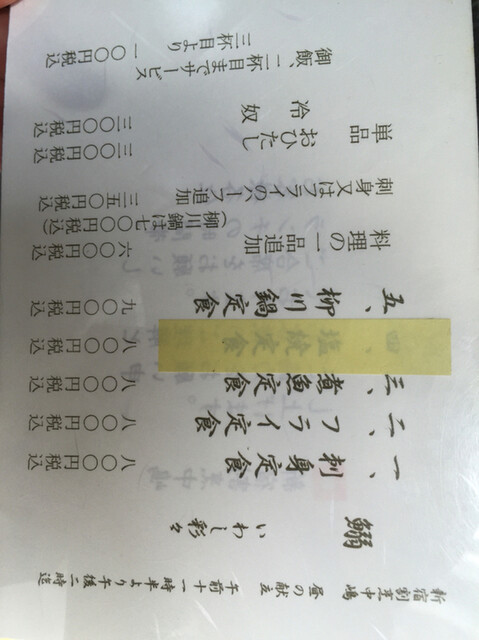 新宿割烹中嶋 昼の献立 午前十一時半より午後二時迄
鰯 いわし彩々
一、刺身定食 八〇〇円税込
二、フライ定食 八〇〇円税込
三、煮魚定食 八〇〇円税込
四、塩焼定食 八〇〇円税込
五、柳川鍋定食 九〇〇円税込
料理の一品追加 六〇〇円税込
(柳川鍋は七〇〇円税込)
刺身又はフライのハーフ追加 三五〇円税込
単品 おひたし 三〇〇円税込
冷奴 三〇〇円税込
御飯、二杯目までサービス
三杯目より 一〇〇円税込